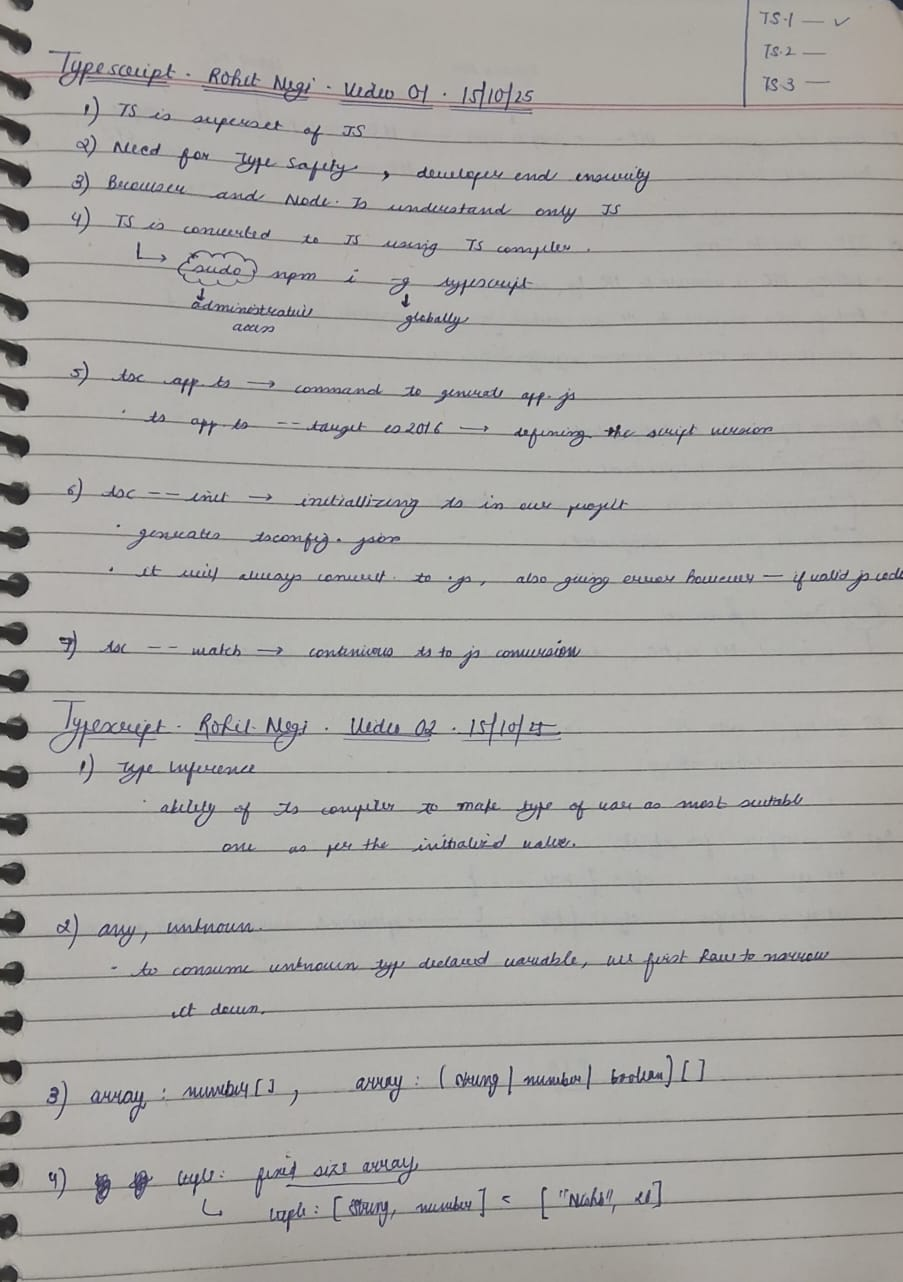 TS.1 — ✓
TS.2 —
TS.3 —
Typescript. Rohit Negi. Video 01. 15/10/25
1) TS is superset of JS
2) Need for Type Safety, developer end
3) Browser and Node.Js understand only JS
4) TS is converted to JS using TS compiler.
↳ sudo npm i -g typescript
↓ ↓
administrative globally
access
5) tsc app.ts → command to generate app.js
· ts app.ts --target es2016 → defining the script version
6) tsc --init → initiallizing ts in our project
· generates tsconfig.json
· it will always convert to .js, also giving error however — if valid js code
7) tsc --watch → continuous ts to js conversion
Typescript. Rohit Negi. Video 02. 15/10/25
1) Type Inference
· ability of Ts compiler to make type of var as most suitable
one as per the initialized value.
2) any, unknown.
· to consume unknown type declared variable, we first have to narrow
it down.
3) array : number[], array : (string | number | boolean) []
4) tuple: fixed size array
↳ tuple : [string, number] = [